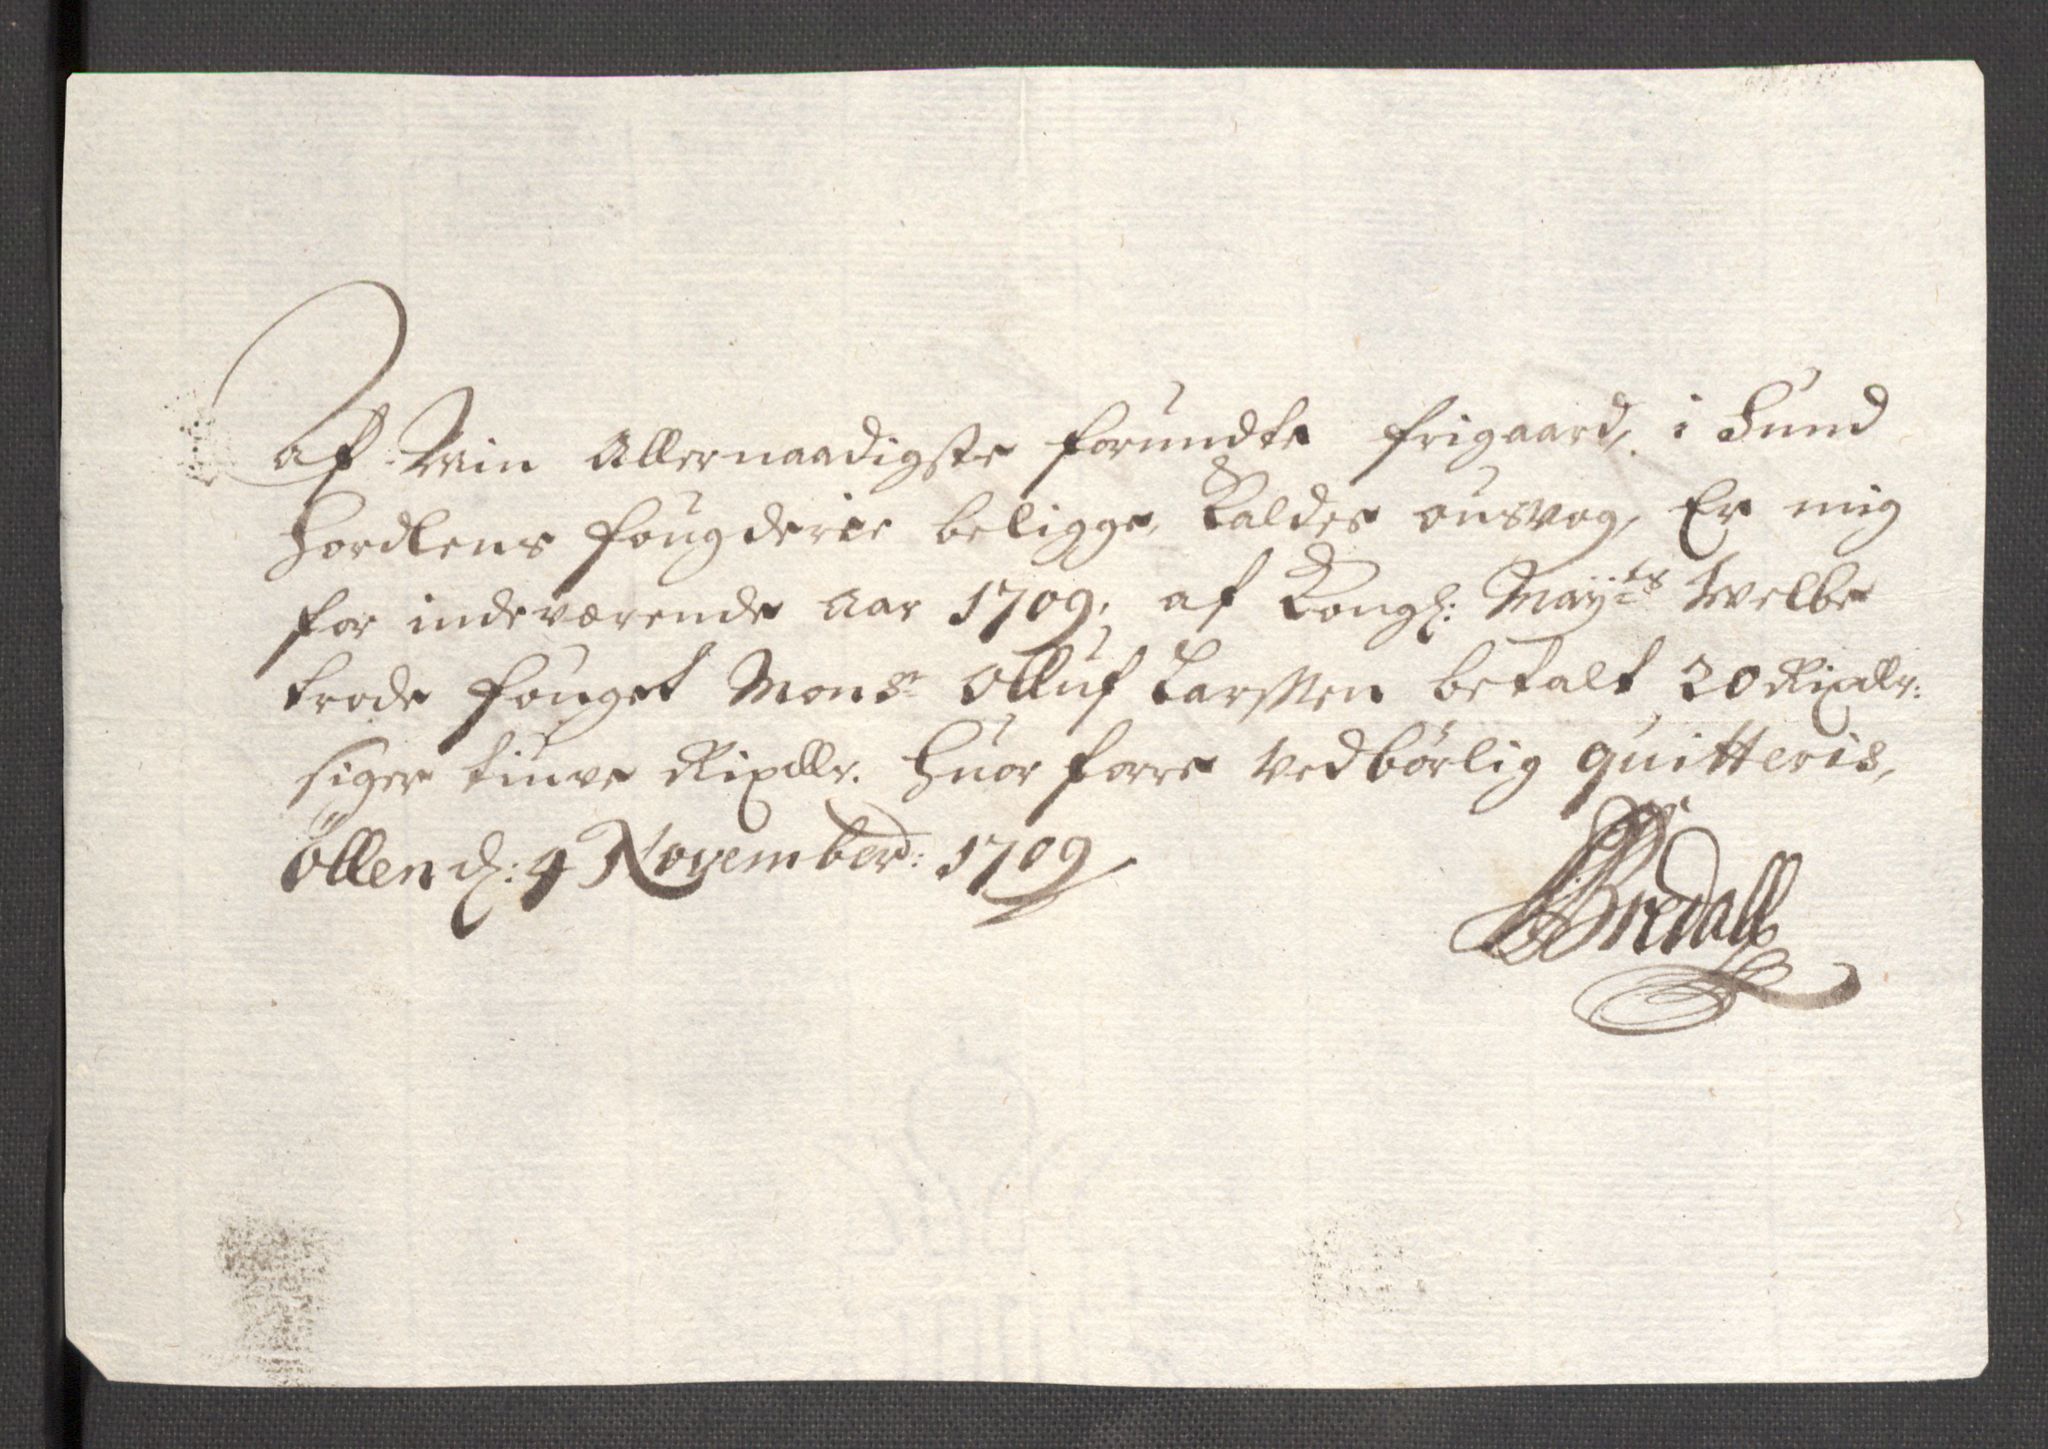 Af Min Allernaadigste forundte frigaard, i Sund
hordlens fougderie beligge, Kaldes onsvog, Er mig
for indeværende Aar 1709, af Kongl: May.ts Welbe
trode fouget Monsr Olluf Larssen betalt 20 Rixdlr:
siger tiuve Rixdlr. huor forre Vedbørlig quitteris,
Öllen d: 4 Novemberd: 1709
Bredall